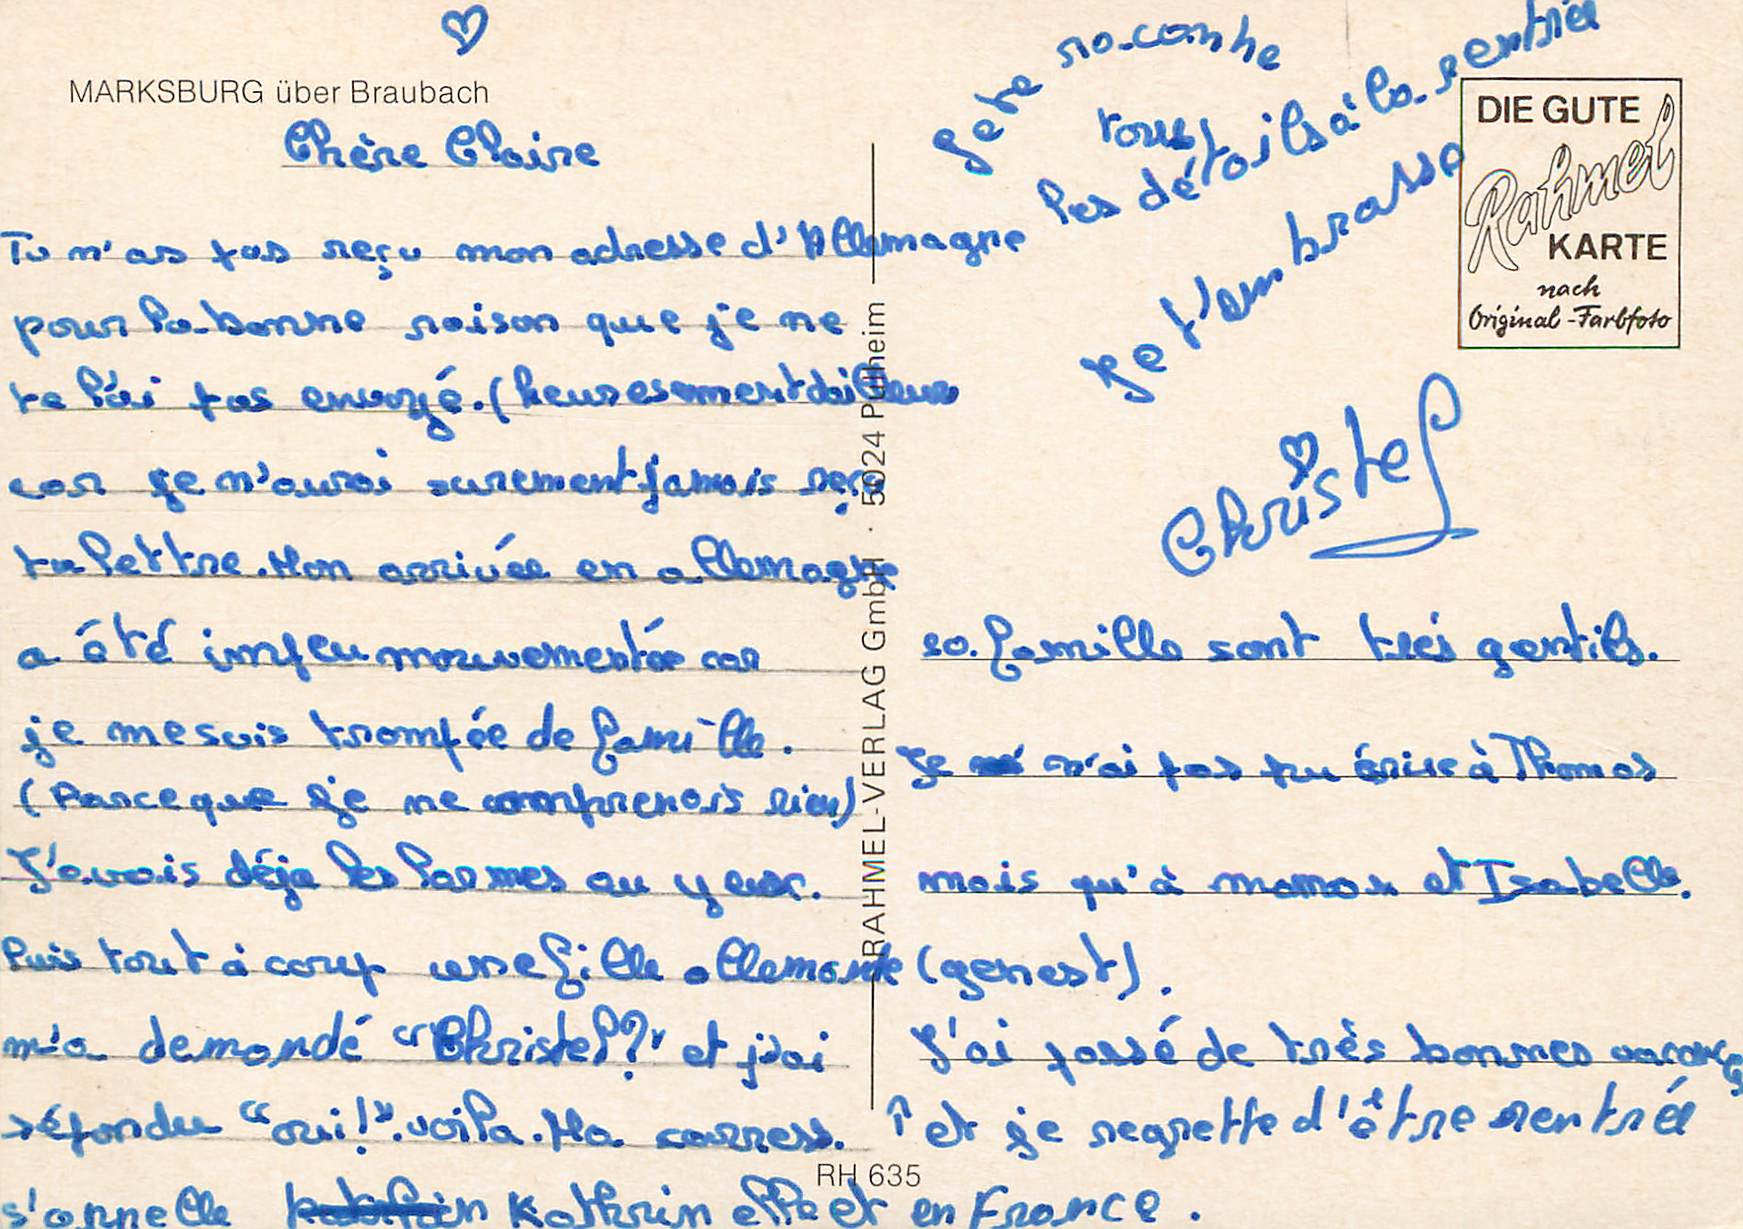 MARKSBURG über Braubach
Chère Claire
Tu n'as pas reçu mon adresse d'Allemagne
pour la bonne raison que je ne
te l'ai pas envoyé. (heuresement dailleurs
car je n'aurai surement jamais reçu
ta lettre. Mon arrivée en allemagne
a été un peu mouvementée car
je me suis trompée de famille.
(Parce que je ne comprenais rien)
J'avais déja les larmes au yeux.
Puis tout à coup une fille allemande
m'a demandé "Christel?" et j'ai
répondu "oui!". voila. Ma corress.
s'appelle Kathrin elle et
sa famille sont très gentils.
Je n'ai pas pu écrire à Thomas
mais qu'à maman et Isabelle.
(genest).
J'ai passé de très bonnes vacances
↑ et je regrette d'être rentrée
en France.
Je te raconte
tous
les détails à la rentrée
Je t'embrasse
Christel
DIE GUTE
Rahmel
KARTE
nach
Original-Farbfoto
RAHMEL-VERLAG GmbH · 5024 Pulheim
RH 635